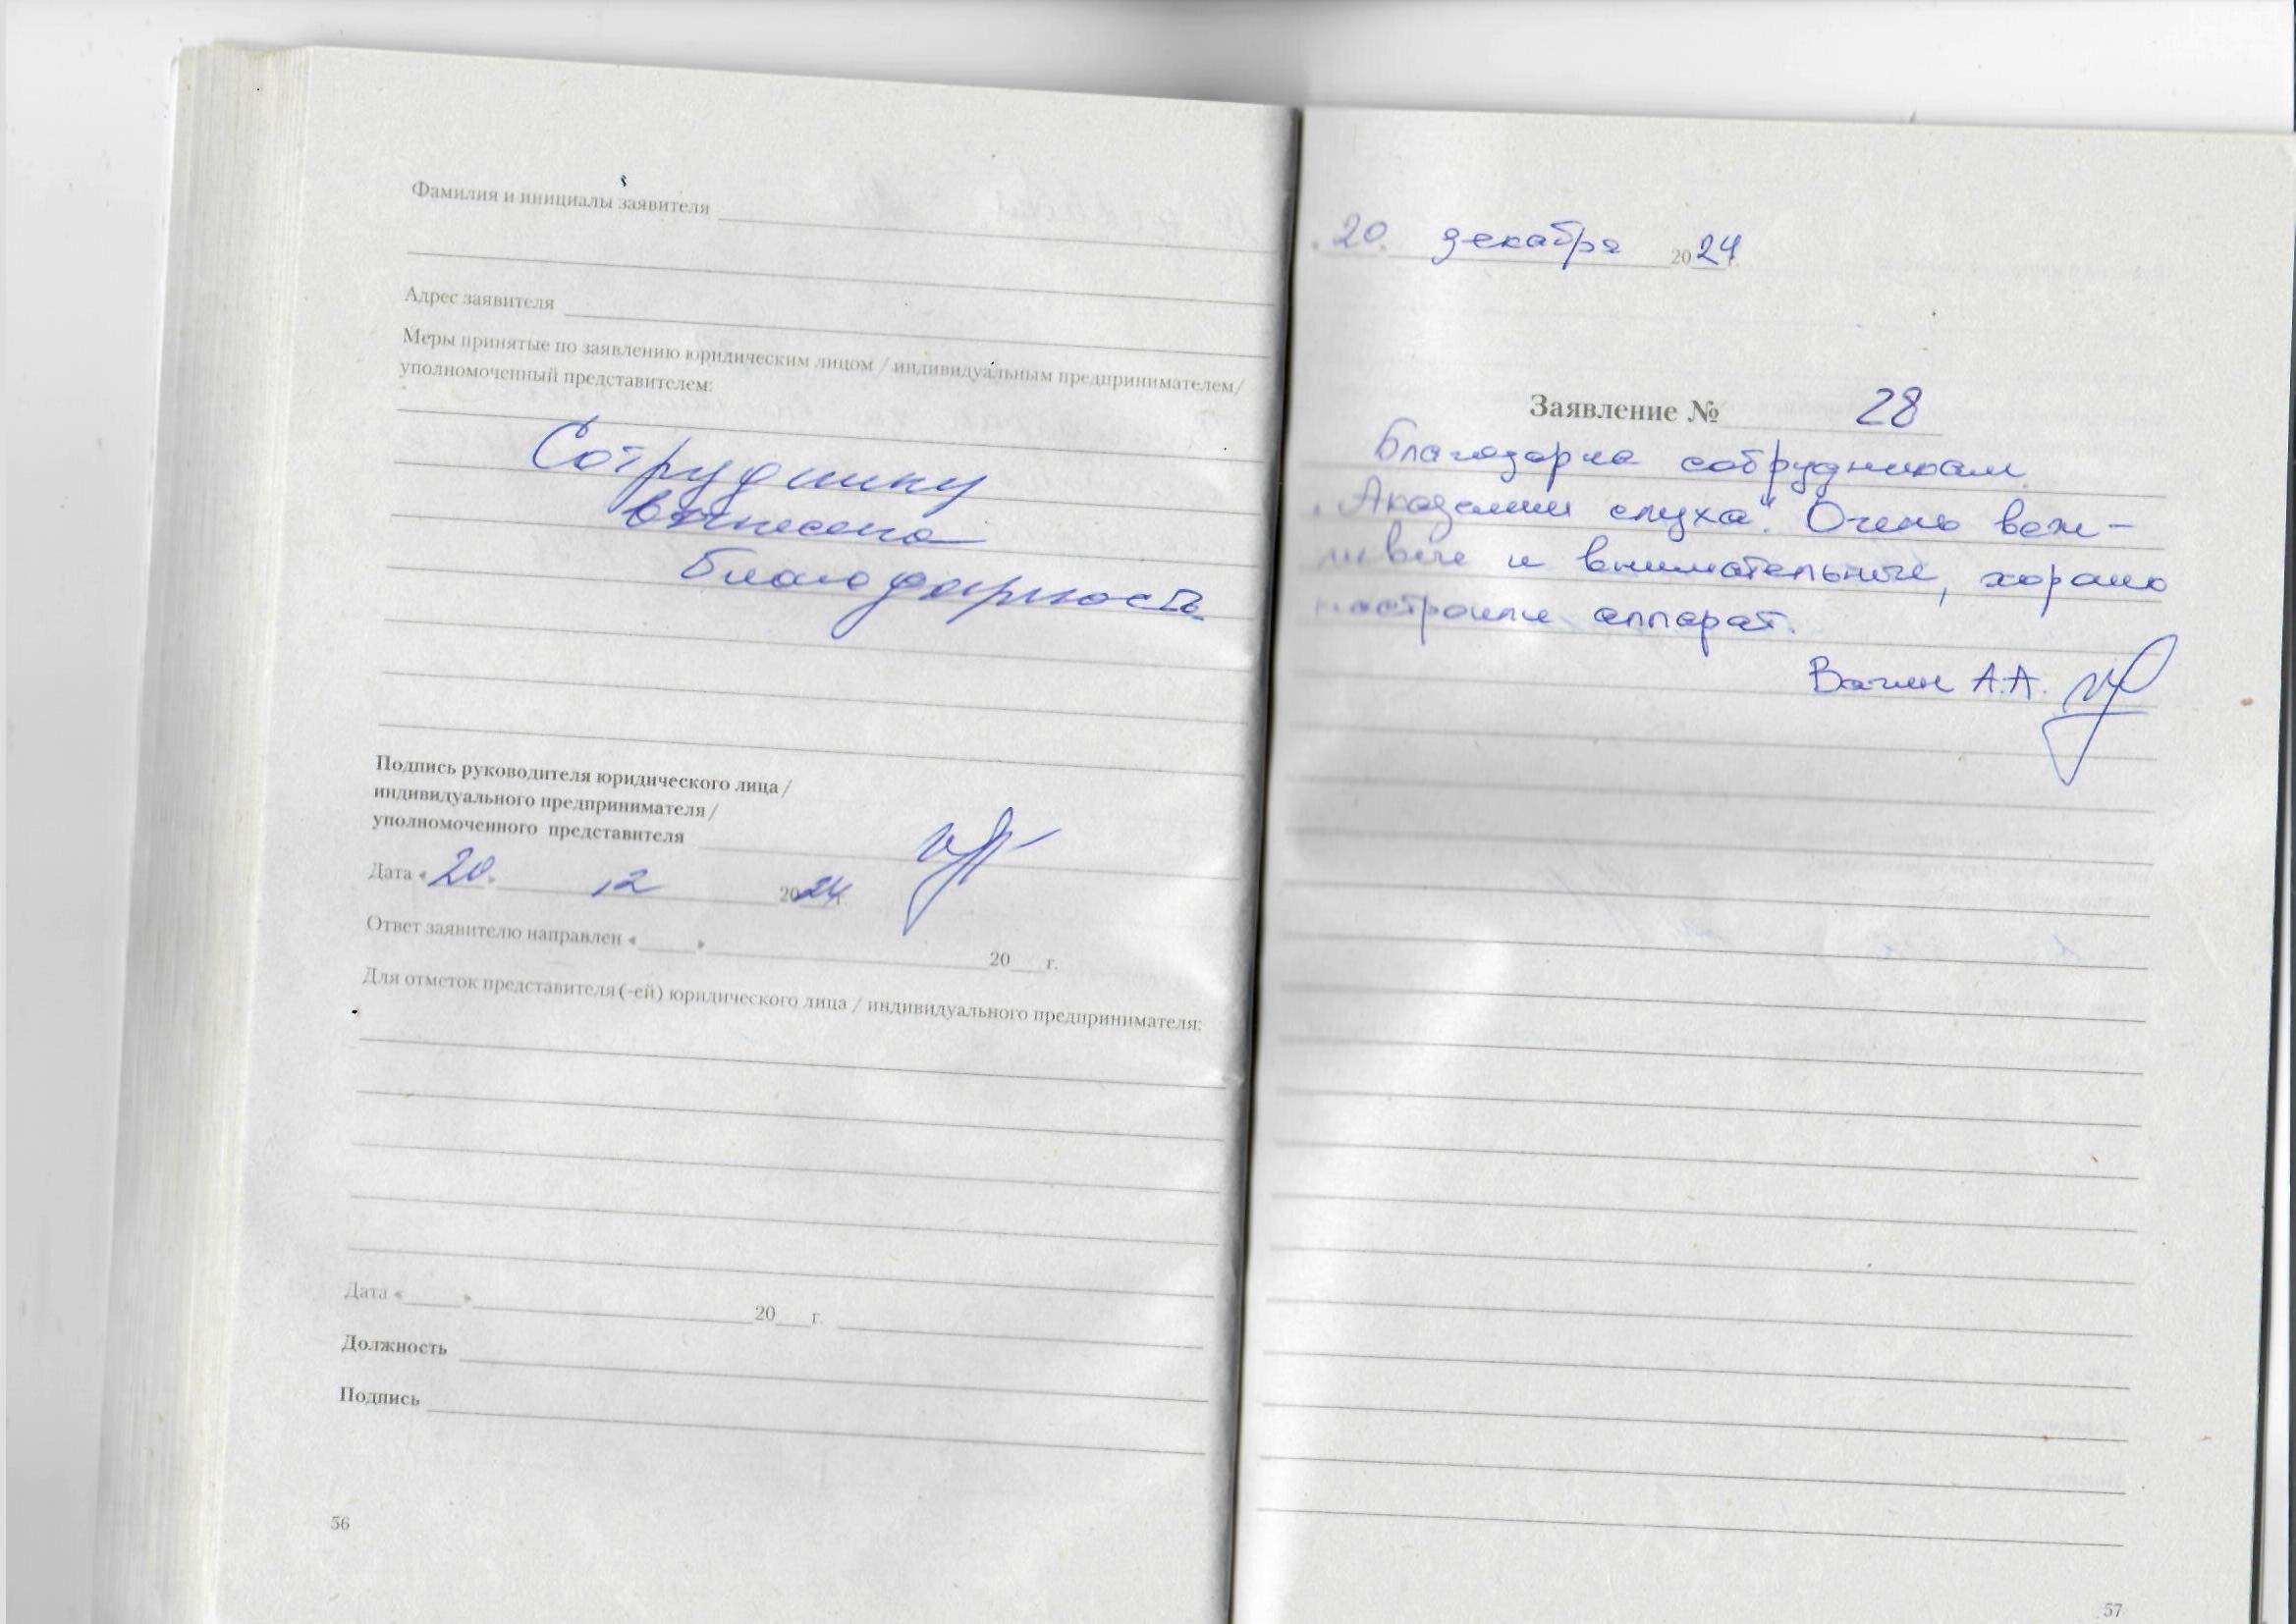 Фамилия и инициалы заявителя
Адрес заявителя
Меры принятые по заявлению юридическим лицом / индивидуальным предпринимателем/
уполномоченный представителем:
Сотруднику
вынесена
благодарность
Подпись руководителя юридического лица /
индивидуального предпринимателя /
уполномоченного представителя
Дата «20» 12 2024
Ответ заявителю направлен «____» 20___г.
Для отметок представителя(-ей) юридического лица / индивидуального предпринимателя:
Дата «____» 20___г.
Должность
Подпись
56
«20» декабря 2024г.
Заявление № 28
Благодарна сотрудникам
"Академии слуха". Очень веж-
ливые и внимательные, хорошо
настроили аппарат.
Вагин А.А.
57